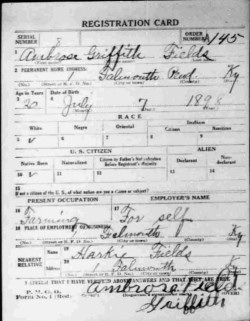 REGISTRATION CARD
SERIAL NUMBER ORDER NUMBER 145
Ambrose Griffith Fields
2 PERMANENT HOME ADDRESS:
Falmouth Ky
Age in Years Date of Birth
20 July 7 1898
RACE
White Negro Oriental Indian
Citizen Noncitizen
U. S. CITIZEN ALIEN
Native Born Naturalized Citizen by Father's Naturalization Before Registrant's Majority Declarant Non-declarant
If not a citizen of the U. S., of what nation are you a citizen or subject?
PRESENT OCCUPATION EMPLOYER'S NAME
Farming For self
18 PLACE OF EMPLOYMENT OR BUSINESS:
Falmouth Ky
NEAREST RELATIVE
Fields
Falmouth Ky
I AFFIRM THAT I HAVE VERIFIED ABOVE ANSWERS AND THAT THEY ARE TRUE
Ambrose
Griffith